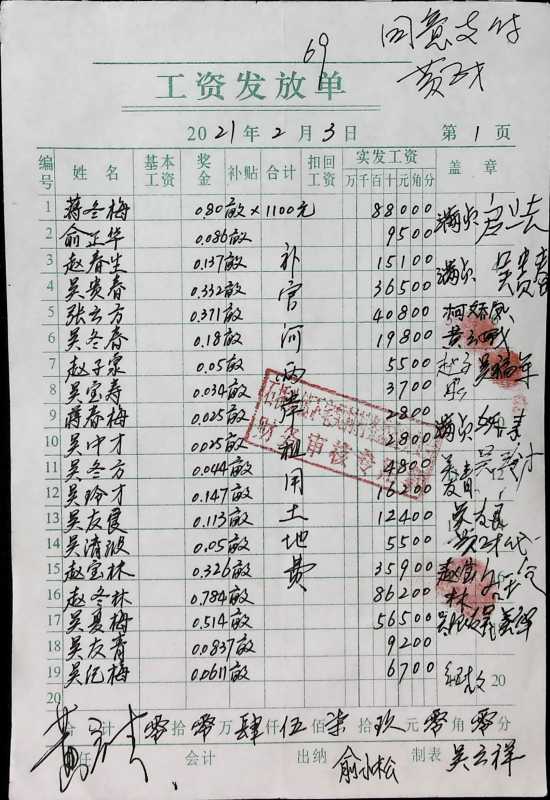 69
同意支付
工资发放单
2021年2月3日 第1页
编号 姓名 基本工资 奖金 补贴 合计 扣回工资 实发工资 万千百十元角分 盖章
1 蒋冬梅 0.80亩×1100元 88000
2 俞正华 0.086亩 9500
3 赵春生 0.137亩 15100
4 吴贵春 0.332亩 36500
5 张云方 0.371亩 40800
6 吴冬春 0.18亩 19800
7 赵子泉 0.05亩 5500
8 吴宝寿 0.034亩 3700
9 蒋春梅 0.025亩 2800
10 吴中才 0.025亩 2800
11 吴冬方 0.044亩 4800
12 吴玲才 0.147亩 16200
13 吴友良 0.113亩 12400
14 吴清波 0.05亩 5500
15 赵宝林 0.326亩 35900
16 赵冬林 0.784亩 86200
17 吴夏梅 0.514亩 56500
18 吴友青 0.0837亩 9200
19 吴纪梅 0.0611亩 6700
20 20
补官河两岸租用土地费
财务审核专用章
合计 零拾零万肆仟伍佰柒拾玖元零角零分
主任 会计 出纳 俞小松 制表 吴云祥